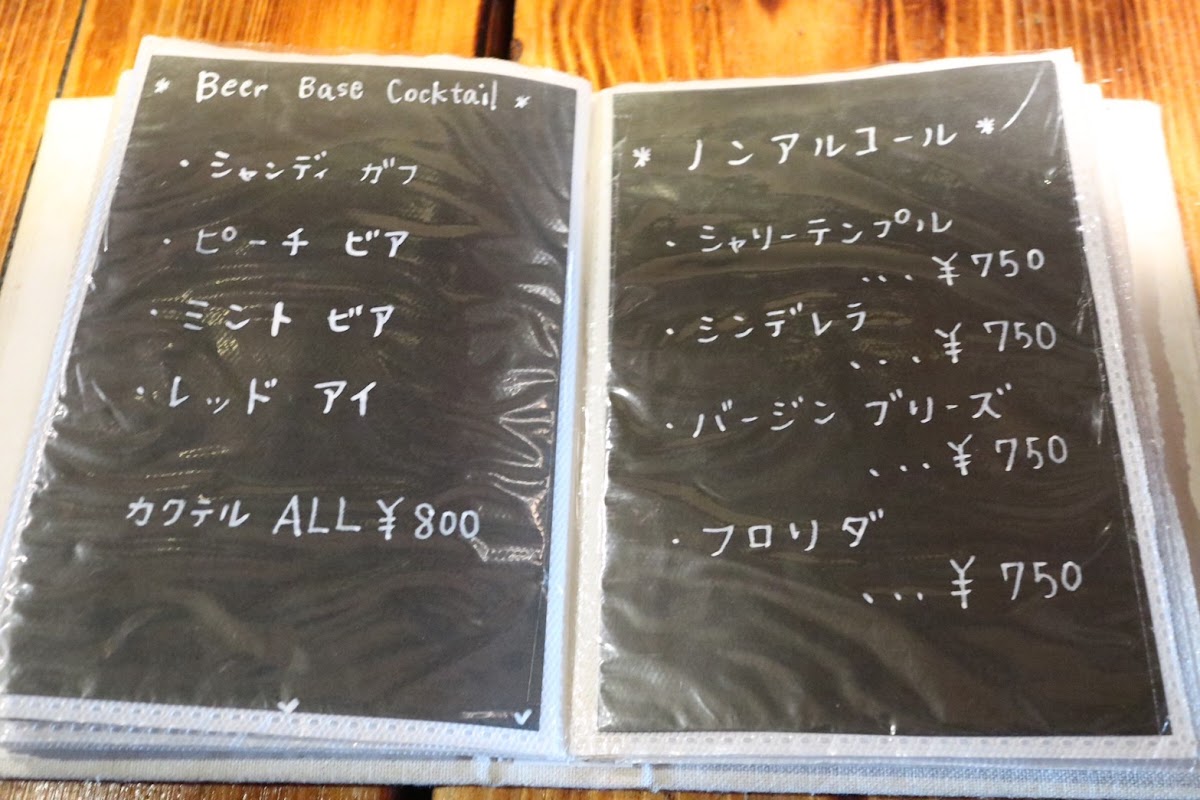 * Beer Base Cocktail *
・シャンディ ガフ
・ピーチ ビア
・ミント ビア
・レッド アイ
カクテル ALL ¥800
* ノンアルコール *
・シャリーテンプル
... ¥750
・ミンデレラ
.... ¥750
・バージン ブリーズ
... ¥750
・フロリダ
.... ¥750